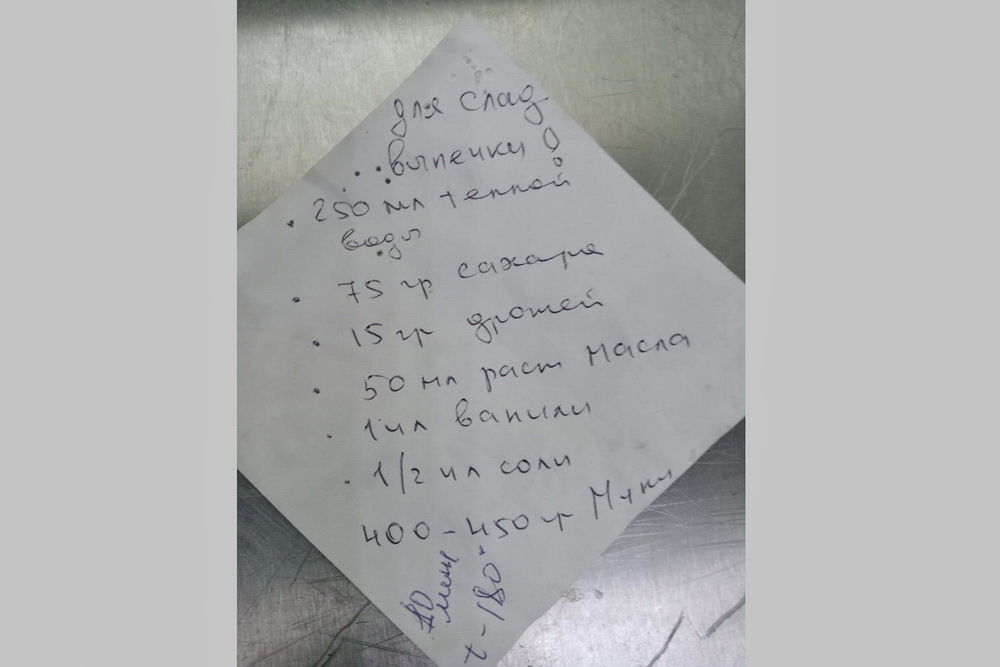 для слад
выпечки!
• 250 мл теплой
воды
• 75 гр сахара
• 15 гр дрожжей
• 50 мл раст масла
• 1 чл ванили
• 1/2 чл соли
400-450 гр Муки
мин
t-180°